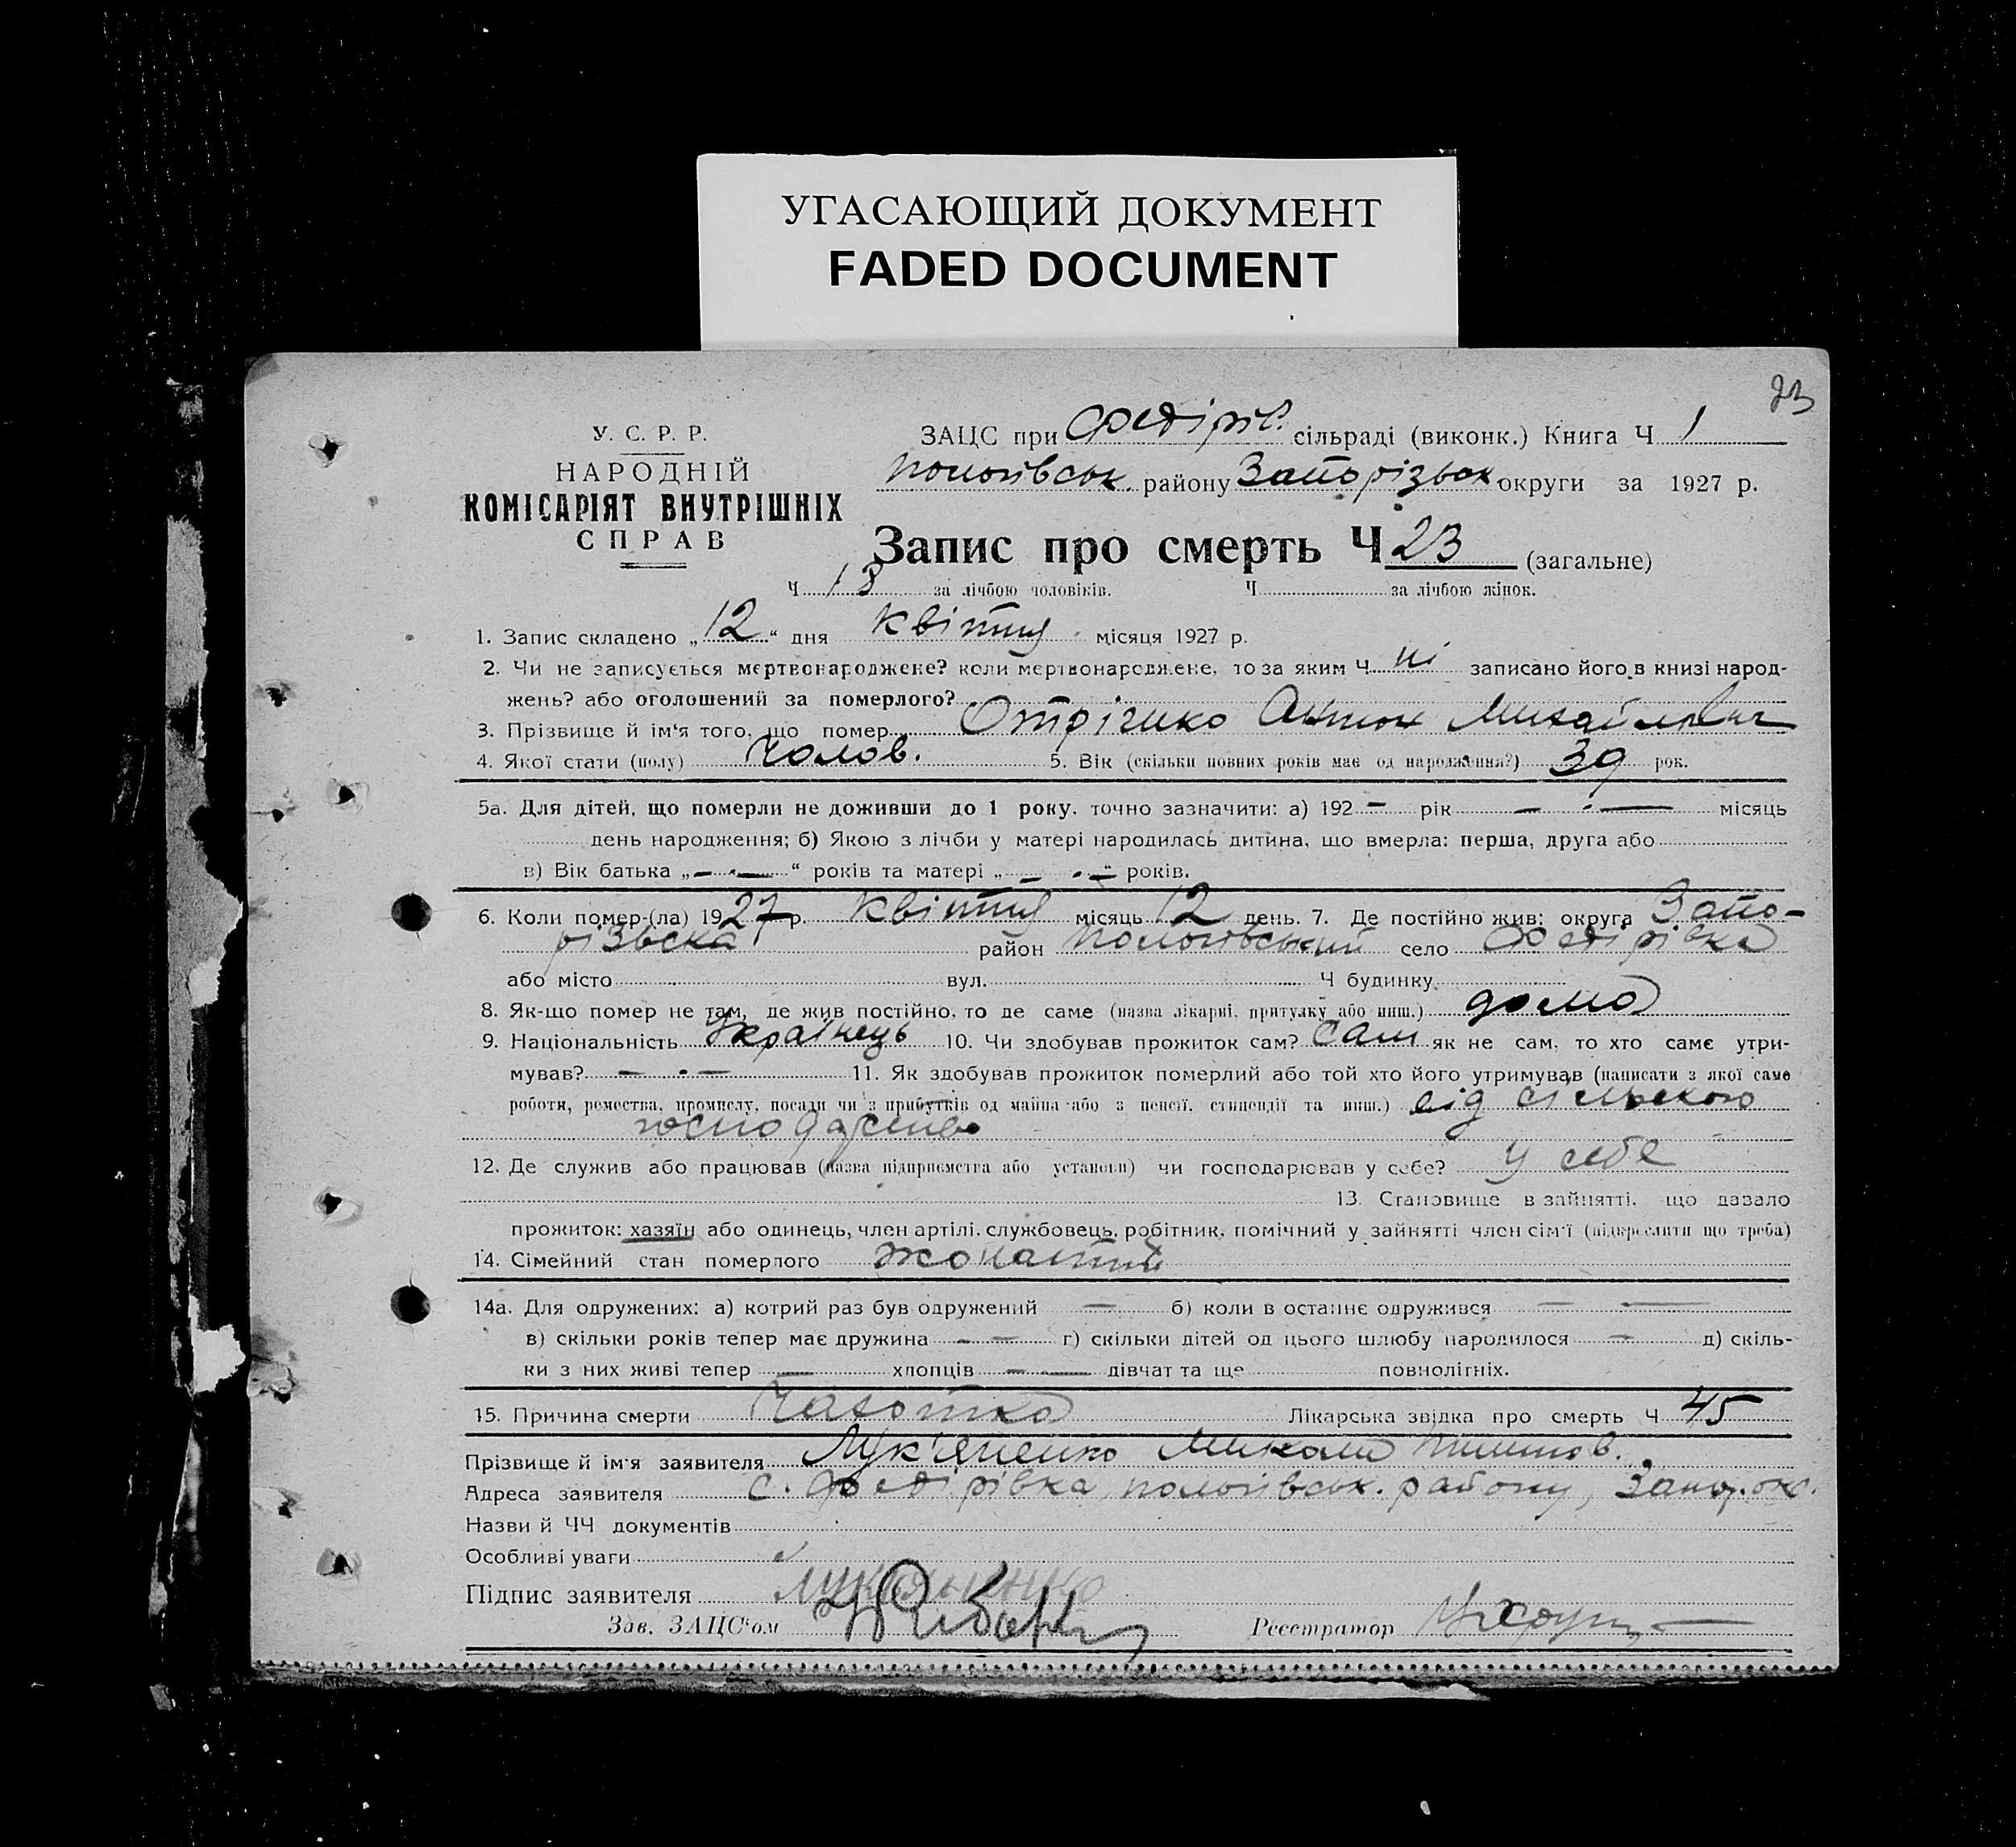 УГАСАЮЩИЙ ДОКУМЕНТ
FADED DOCUMENT
23
У. С. Р. Р.
НАРОДНІЙ
КОМІСАРІЯТ ВНУТРІШНІХ
СПРАВ
ЗАЦС при Федірів. сільраді (виконк.) Книга Ч 1
Пологівськ. району Запорізьк округи за 1927 р.
Запис про смерть Ч 23 (загальне)
Ч 13 за лічбою чоловіків. Ч за лічбою жінок.
1. Запис складено „12“ дня квітня місяця 1927 р.
2. Чи не записується мертвонароджене? коли мертвонароджене, то за яким Ч ні записано його в книзі народ-
жень? або оголошений за померлого?
3. Прізвище й ім'я того, що помер Отрішко Антон Михайлович
4. Якої стати (полу) Чолов. 5. Вік (скільки повних років має од народження?) 39 рок.
5а. Для дітей, що померли не доживши до 1 року, точно зазначити: а) 192 – рік — · — місяць
день народження; б) Якою з лічби у матері народилась дитина, що вмерла: перша, друга або
в) Вік батька „— · —“ років та матері „— · —“ років.
6. Коли помер-(ла) 1927 р. квітня місяць 12 день. 7. Де постійно жив: округа Запо-
різьска район Пологівський село Федірівка
або місто вул. Ч будинку
8. Як-що помер не там, де жив постійно, то де саме (назва лікарні, притулку або инш.) дома
9. Національність Українець 10. Чи здобував прожиток сам? Сам як не сам, то хто саме утри-
мував? — · — 11. Як здобував прожиток померлий або той хто його утримував (написати з якої саме
роботи, ремества, промислу, посади чи з прибутків од майна або з пенсії, стипендії та инш.) від сільского
господарства
12. Де служив або працював (назва підприємства або установи) чи господарював у себе? у себе
13. Становище в зайнятті, що давало
прожиток: хазяїн або одинець, член артілі, службовець, робітник, помічний у зайнятті член сім'ї (підкреслити що треба)
14. Сімейний стан померлого жонатий
14а. Для одружених: а) котрий раз був одружений — б) коли в останнє одружився — —
в) скільки років тепер має дружина — — г) скільки дітей од цього шлюбу народилося — д) скіль-
ки з них живі тепер — хлопців — · — дівчат та ще повнолітніх.
15. Причина смерти Чахотка Лікарська звідка про смерть Ч 45
Прізвище й ім'я заявителя Лук'яненко Микола
Адреса заявителя с. Федірівка, Пологівськ. району, Запор. окс.
Назви й ЧЧ документів
Особливі уваги
Підпис заявителя Лукьяненко
Зав. ЗАЦС'ом Реєстратор